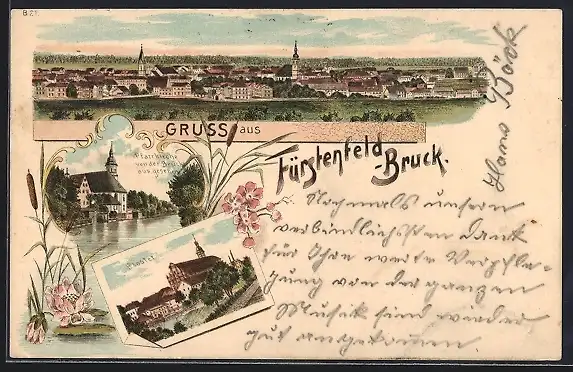 B 21.
GRUSS aus
Fürstenfeld
-Bruck.
Pfarrkirche
von der Brücke
aus gesehen
Kloster
Hans Böck
Nochmals unsern
verbindlichsten Dank
für Ihre werte Verpfle-
gung von der ganzen
Musik sind wieder
gut angekommen.